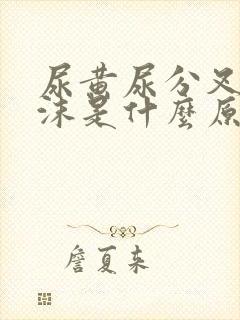 尿黄尿分叉
沫是什麼原
詹夏来